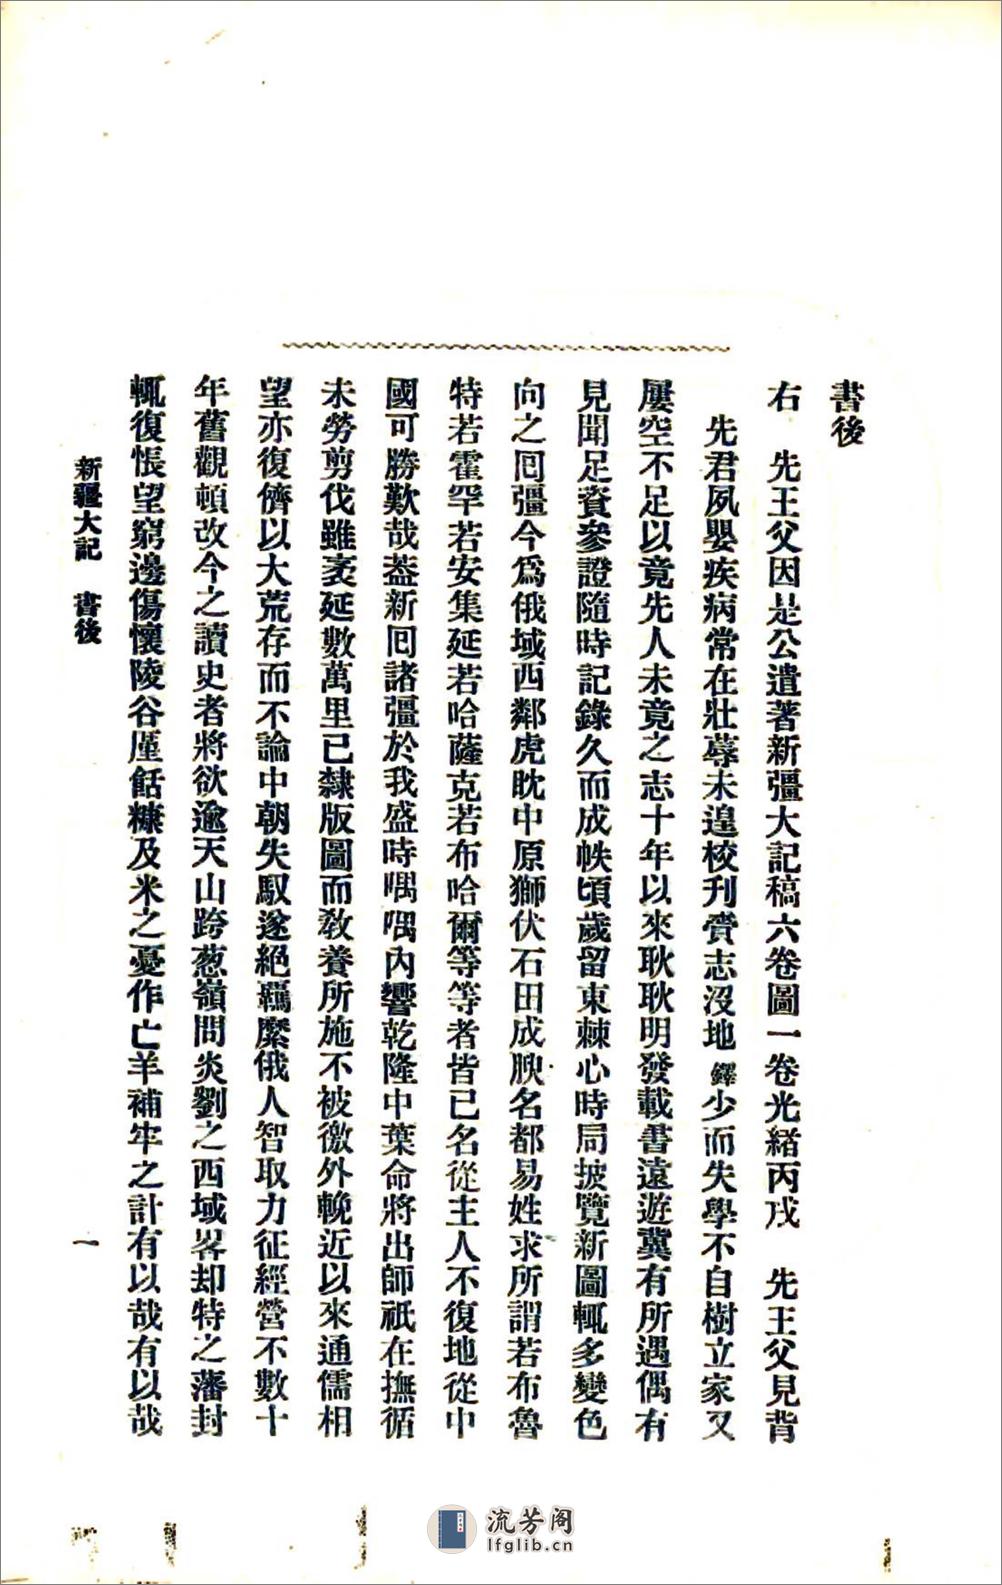 書後
右　先王父因是公遺著新疆大記稿六卷圖一卷光緒丙戌　先王父見背
先君夙嬰疾病常在壯蓐未遑校刊賫志沒地鐸少而失學不自樹立家又
屢空不足以竟先人未竟之志十年以來耿耿明發載書遠遊冀有所遇偶有
見聞足資參證隨時記錄久而成帙頃歲留東棘心時局披覽新圖輒多變色
向之囘彊今爲俄域西鄰虎眈中原獅伏石田成腴名都易姓求所謂若布魯
特若霍罕若安集延若哈薩克若布哈爾等等者皆已名從主人不復地從中
國可勝歎哉葢新囘諸彊於我盛時喁喁內響乾隆中葉命將出師祇在撫循
未勞剪伐雖袤延數萬里已隸版圖而敎養所施不被徼外輓近以來通儒相
望亦復儕以大荒存而不論中朝失馭遂絕羈縻俄人智取力征經營不數十
年舊觀頓改今之讀史者將欲逾天山跨葱嶺問炎劉之西域畧却特之藩封
輒復悵望窮邊傷懷陵谷厪餂糠及米之憂作亡羊補牢之計有以哉有以哉
新疆大記　書後　一
流芳阁
lfglib.cn